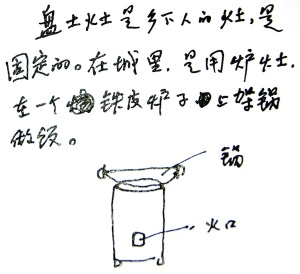 盘土灶是乡下人的灶,是
固定的。在城里,是用炉灶,
在一个铁皮炉子上架锅
做饭。
锅
火口